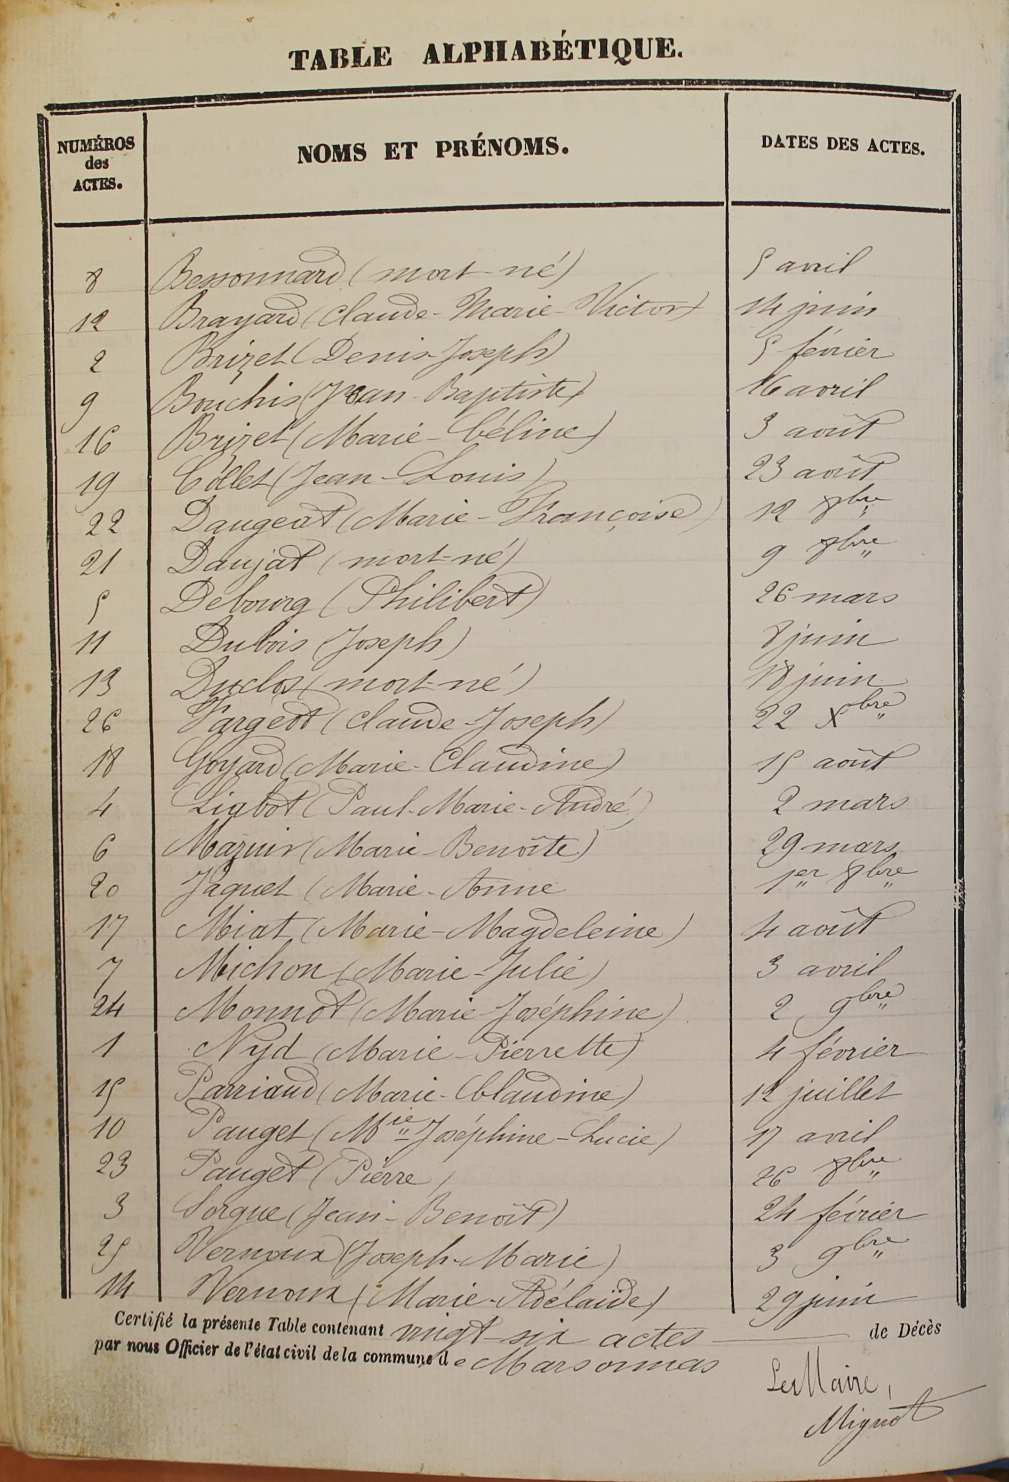 TABLE ALPHABÉTIQUE.
NUMÉROS des ACTES. NOMS ET PRÉNOMS. DATES DES ACTES.
8 Bessonnard (mort-né) 5 avril
12 Brayard (Claude-Marie-Victor) 14 juin
2 Brizet (Denis-Joseph) 5 février
9 Bouchis (Jean-Baptiste) 16 avril
16 Brizet (Marie-Céline) 3 août
19 Collet (Jean-Louis) 23 août
22 Daugeat (Marie-Françoise) 12 8bre
21 Daujat (mort-né) 9 8bre
5 Debourg (Philibert) 26 mars
11 Dubois (Joseph) 8 juin
13 Duclos (mort-né) 18 juin
26 Fargeot (Claude-Joseph) 22 Xbre
18 Goyard (Marie-Claudine) 15 août
4 Ligbot (Paul-Marie-André) 2 mars
6 Mazuir (Marie-Benoîte) 29 mars
20 Jaquet (Marie-Anne 1er 8bre
17 Miat (Marie-Magdeleine) 4 août
7 Michon (Marie-Julie) 3 avril
24 Monnot (Marie-Joséphine) 2 9bre
1 Nyd (Marie-Pierrette) 4 février
15 Parriaud (Marie-Claudine) 12 juillet
10 Pauget (Mie Joséphine-Lucie) 17 avril
23 Pauget (Pierre) 26 8bre
3 Sorgue (Jean-Benoît) 24 février
25 Vernoux (Joseph-Marie) 3 9bre
14 Vernoux (Marie-Adélaïde) 29 juin
Certifié la présente Table contenant vingt six actes de Décès
par nous Officier de l'état civil de la commune de Marsonnas
Le Maire,
Mignot